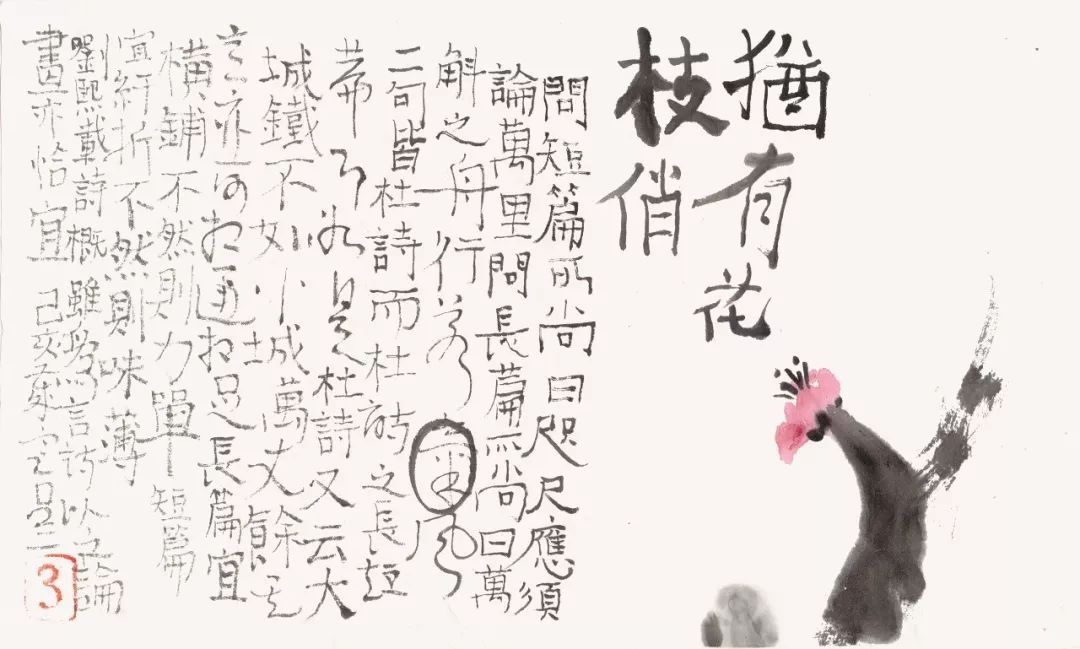 猶有花
枝俏
問短篇所尚曰咫尺應須
論萬里問長篇所尚曰萬
斛之舟行若風
二句皆杜詩而杜詩之長短
篇即如是杜詩又云大
城鐵不如小城萬丈餘其
意亦可相通相足長篇宜
橫鋪不然則力單短篇
宜紆折不然則味薄
劉熙載詩概雖為言詩以之論
畫亦恰宜 己亥
3